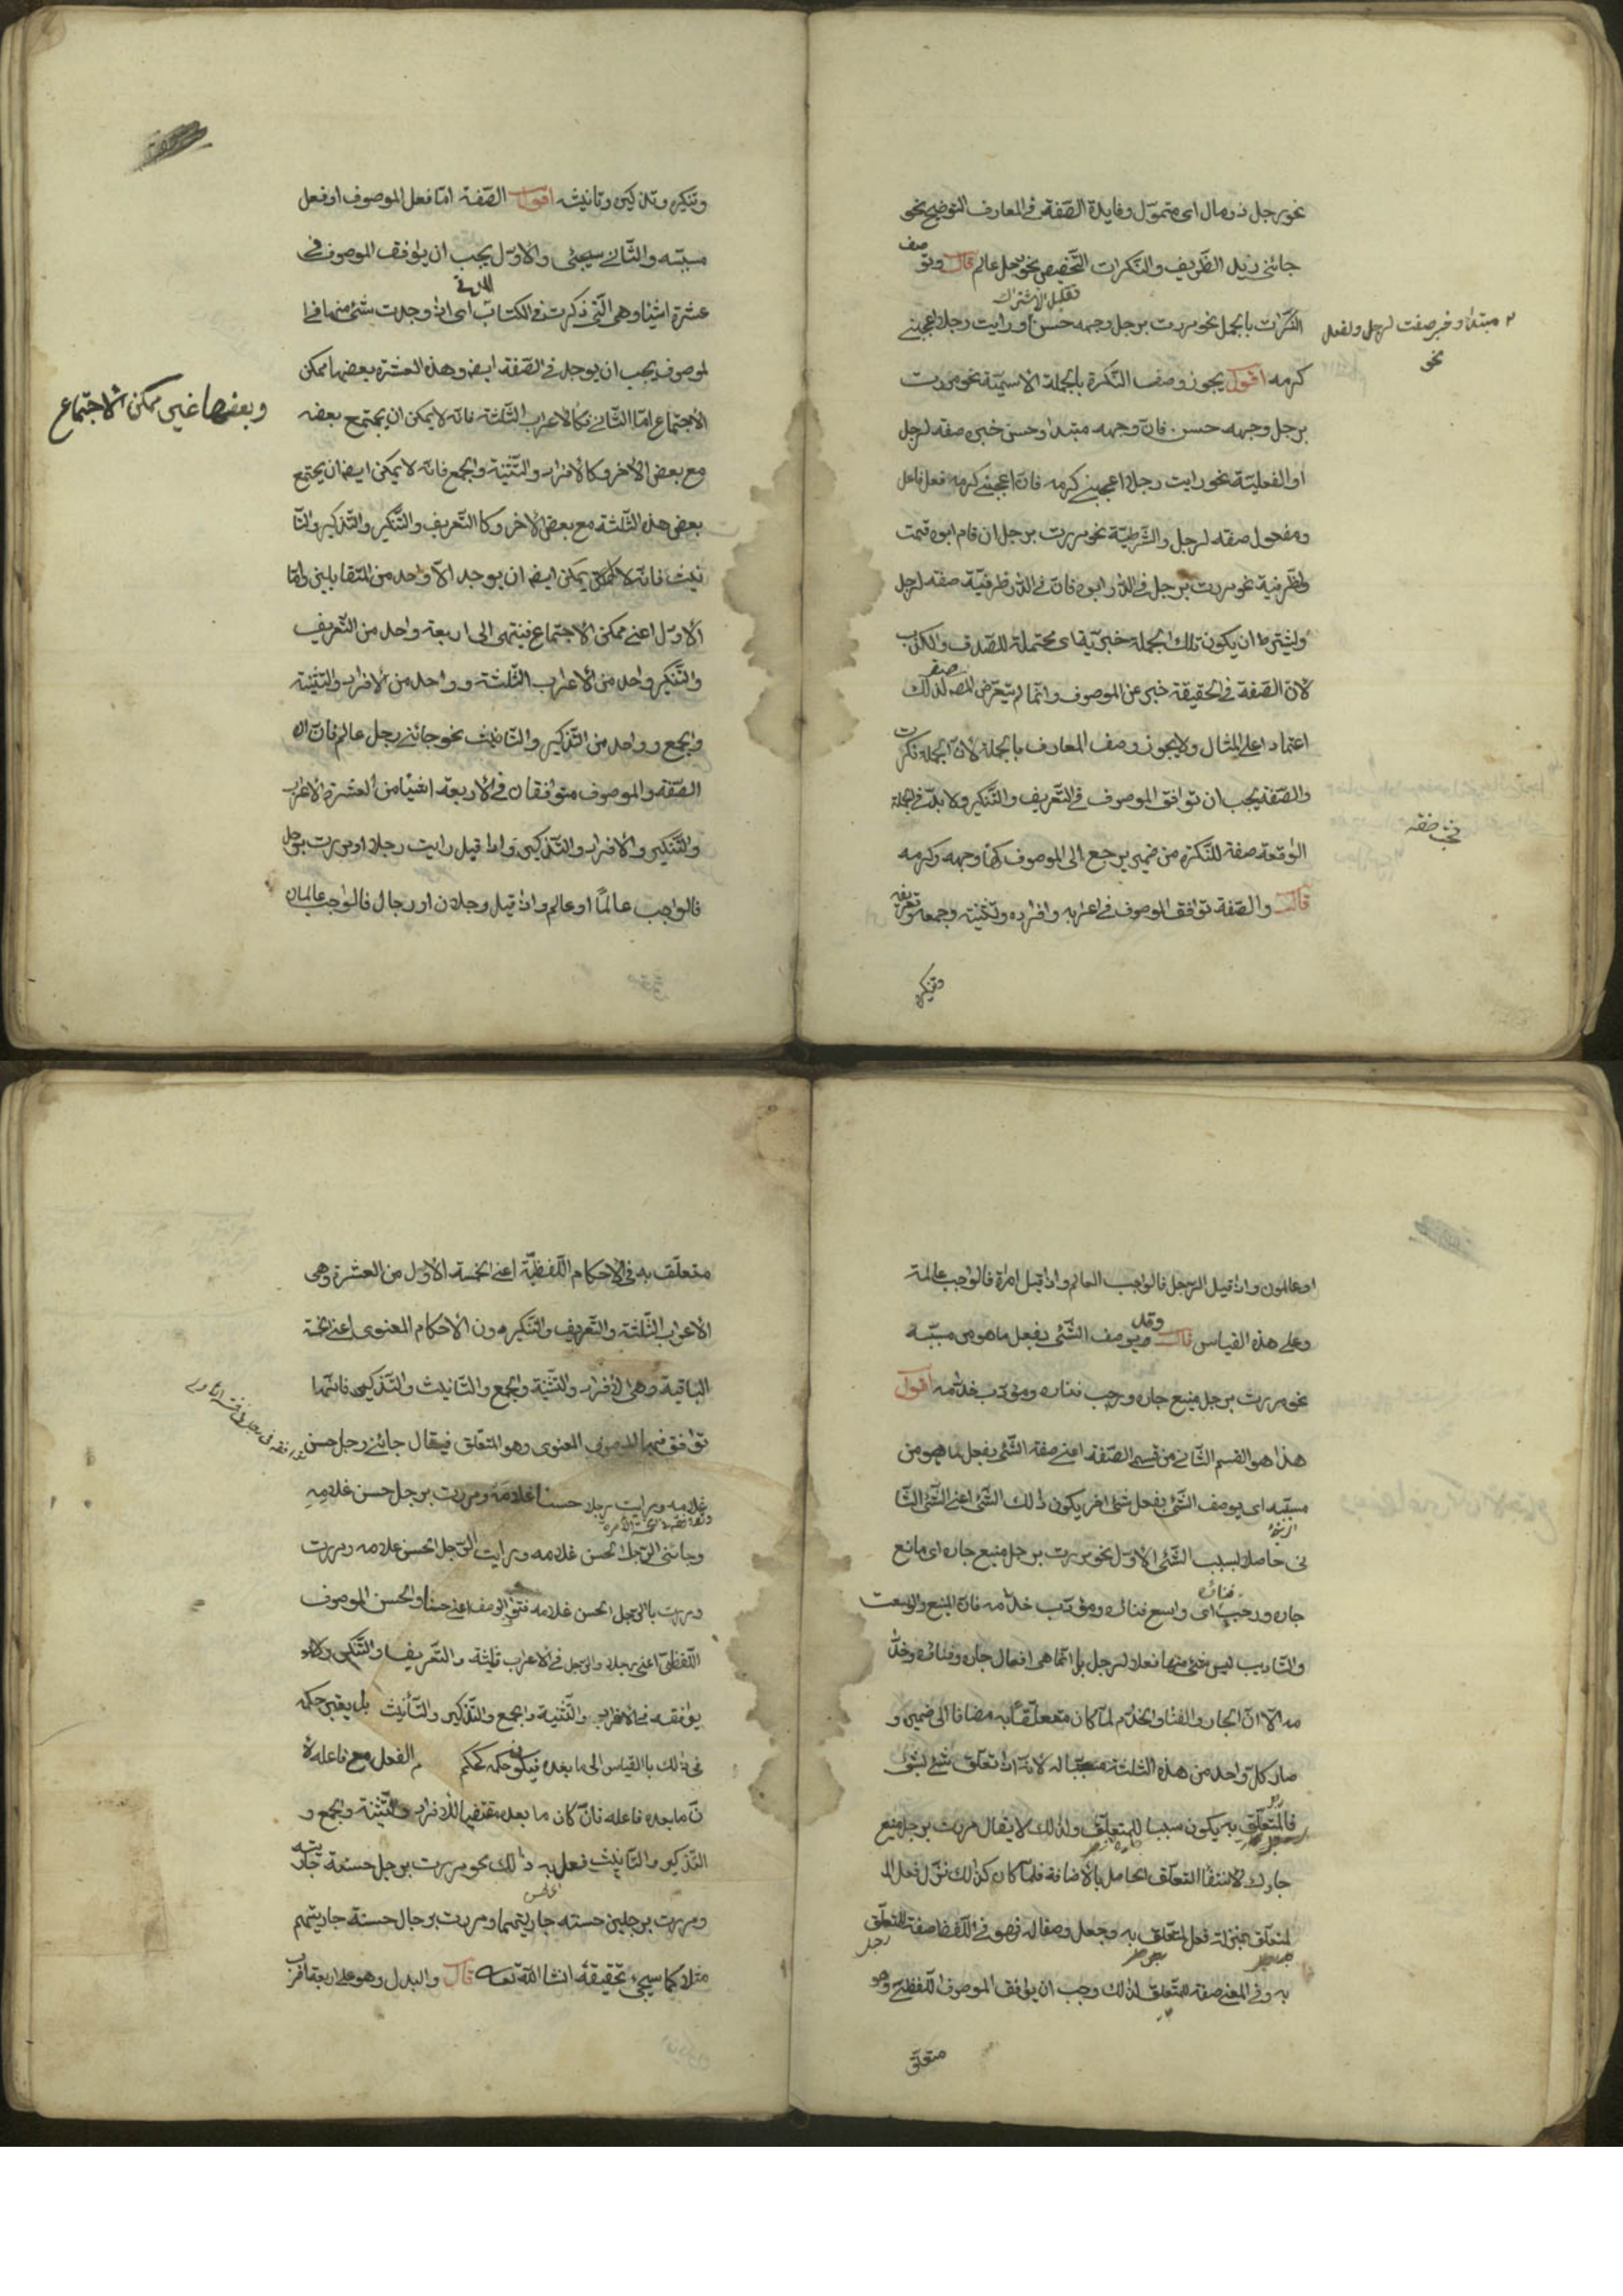 نحو رجل ذو مال اى متموّل وفايدة الصّفة فى المعارف التوضيح نحو
جائنى زيد الظّريف والنّكرات التّخصيص نحو رجل عالم قال وتو
صف
تقليل الاشتراك
النّكرات بالجمل نحو مررت برجل وجهه حسن او رايت رجلا اعجبنى
مبتدا وخبر صفت لرجل ولفعل
نحو
كرمه اقول يجوز وصف النّكرة بالجملة الاسميّة نحو مررت
برجل وجهه حسن فانّ وجهه مبتدا وحسن خبره صفة لرجل
او الفعليّة نحو رايت رجلا اعجبنى كرمه فانّ اعجبنى كرمه فعل فاعل
ومفعول صفة لرجل والشّرطيّة نحو مررت برجل ان قام ابوه قمت
والظّرفية نحو مررت برجل فى الدّار ابوه فانّ فى الدّار ظرفيّة صفة لرجل
ويشترط ان يكون تلك الجملة خبريّة اى محتملة للصّدق والكذب
لانّ الصّفة فى الحقيقة خبر عن الموصوف وانّما لم يتعرّض المصنف لذلك
اعتمادا على المثال ولا يجوز وصف المعارف بالجملة لانّ الجملة نكرت
والصّفة يجب ان توافق الموصوف فى التّعريف والتّنكير ولا بدّ فى الجملة
الواقعة صفة للنّكرة من ضمير يرجع الى الموصوف كهاء وجهه وكرمه
قال والصّفة توافق الموصوف فى اعرابه وافراده وتثنيته وجمعه وتعريفه
وتنكيره
وتنكيره وتذكيره وتانيثه اقول الصّفة امّا فعل الموصوف او فعل
مسبّبه والثّانى سيجئى والاوّل يجب ان يوافق الموصوف فى
عشرة اشياء وهى الّتى ذكرت فى الكتاب اى اذا وجدت شئ منها فى ا
لموصوف يجب ان يوجد فى الصّفة ايضا وهذه العشرة بعضها ممكن
وبعضها غير ممكن الاجتماع
الاجتماع امّا الثّانى فكالاعراب الثّلثة فانّه لا يمكن ان يجتمع بعضه
مع بعض الاخر وكالافراد والتّثنية والجمع فانّه لا يمكن ايضا ان يجتمع
بعض هذه الثّلثة مع بعض الاخر وكالتّعريف والتّنكير والتّذكير والتّا
نيث فانّه لا يمكن ايضا ان يوجد الاّ واحد من المتقابلين وامّا
الاوّل اعنى ممكن الاجتماع فينتهى الى اربعة واحد من التّعريف
والتّنكير واحد من الاعراب الثّلثة وواحد من الافراد والتّثنية
والجمع وواحد من التّذكير والتّانيث نحو جائنى رجل عالم فانّ
الصّفة والموصوف متوافقان فى الاربعة اشياء من العشرة الاعراب
والتّنكير والافراد والتّذكير واذا قيل رايت رجلا او مررت برجل
فالواجب عالمًا او عالم واذا قيل رجلان او رجال فالواجب عالمان
او عالمون واذا قيل الرّجل فالواجب العالم واذا قيل امراة فالواجب عالمة
وعلى هذه القياس قال وقد يوصف الشّئ بفعل ما هو من مسبّبه
نحو مررت برجل منيع جاره ورحب فناؤه ومؤدّب خدّامه اقول
هذا هو القسم الثّانى من قسمى الصّفة اعنى صفة الشّئ بفعل ما هو من
مسبّبه اى يوصف الشّئ بفعل شئ اخر يكون ذلك الشّئ اعنى الشّئ الثّا
نى حاصلا بسبب الشّئ الاوّل نحو مررت برجل منيع جاره اى مانع
جاره ورحب فناؤه اى واسع فناؤه ومؤدّب خدّامه فانّ المنع والوسعت
والتّاديب ليس شئ منها فعلا لرجل بل انّما هى افعال جاره وفنائه وخدّا
مه الاّ انّ الجار والفناء والخدّام لمّا كان متعلّقا به مضافا الى ضميره و
صار كلّ واحد من هذه الثلثة مسبّبا له لانّه اذا تعلّق شئ بشئ
فالمتعلّق به يكون سببا للمتعلّق ولذلك لا يقال مررت برجل منيع
جارك لانتفاء التعلّق الحاصل بالاضافة فلمّا كان كذلك نزّل فعل ا
لمتعلّق بمنزلة فعل المتعلّق به وجعل وصفا له فهو فى اللّفظ صفة للمتعلّق
به وفى المعنى صفة للمتعلّق لذلك وجب ان يوافق الموصوف اللّفظىّ وهو
متعلّق
متعلّق به فى الاحكام اللّفظيّة اعنى الخمسة الاوّل من العشرة وهى
الاعراب الثّلثة والتّعريف والتّنكير دون الاحكام المعنوى اعنى الخمسة
الباقية وهى الافراد والتّثنية والجمع والتّانيث والتّذكير فانّها
توافق فيها الموصوف المعنوى وهو المتعلّق فيقال جائنى رجل حسن
غلامه ورايت رجلا حسنا غلامه ومررت برجل حسن غلامه
وجائنى الرّجل الحسن غلامه ورايت الرّجل الحسن غلامه ومررت
بالرّجل الحسن غلامه فتوافق الوصف اعنى حسنا والحسن الموصوف
اللّفظىّ اعنى رجلا والرّجل فى الاعراب ثلثة والتّعريف والتّنكير ولا
يوافقه فى الافراد والتّثنية والجمع والتّذكير والتّأنيث بل يعتبر حكمه
فى ذلك بالقياس الى ما بعده فيكون حكمه كحكم الفعل مع فاعله لا
نّ ما بعده فاعله فانّ كان ما بعده مقتضيا للافراد والتّثنية والجمع و
التّذكير والتّانيث فعل به ذلك نحو مررت برجل حسنة جاريته
ومررت برجلين حسنة جاريتهما ومررت برجال حسنة جاريتهم
مثلا كما سيجئ تحقيقه انشا اللّه تعالى قال والبدل وهو على اربعة اضرب